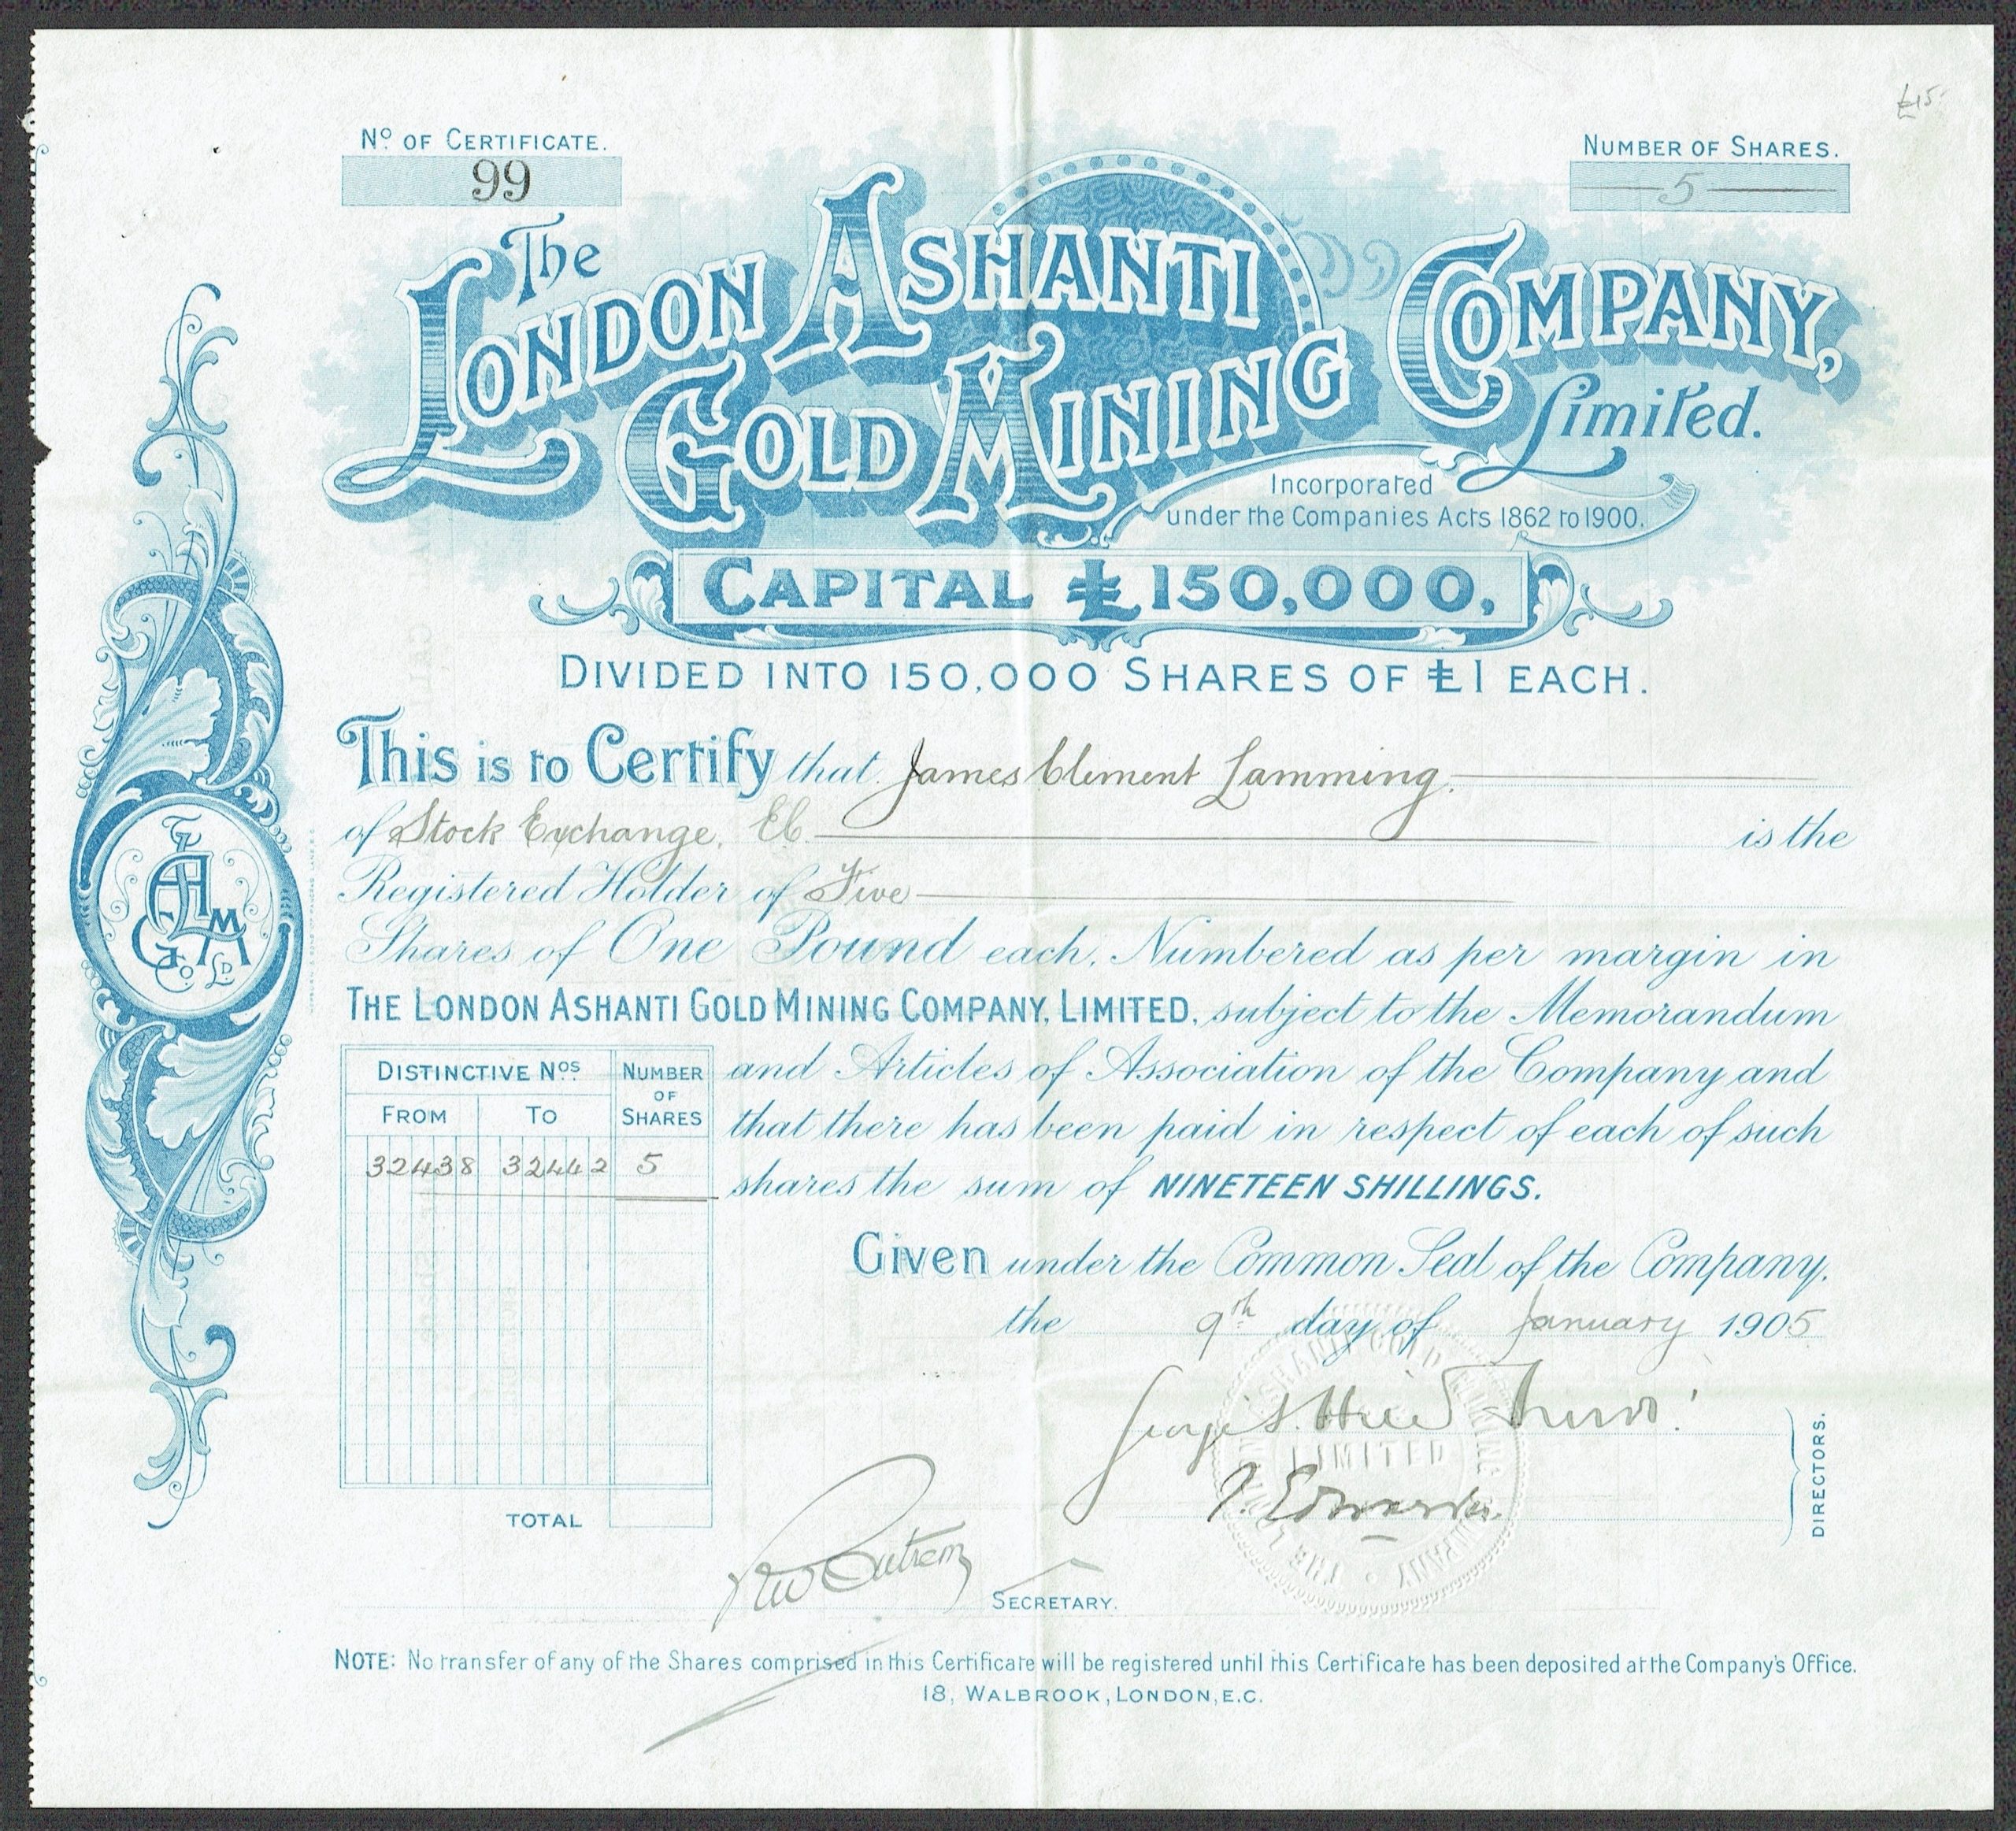 £15-
Nº OF CERTIFICATE.
99
NUMBER OF SHARES.
5
The
LONDON ASHANTI
GOLD MINING COMPANY,
Limited.
Incorporated
under the Companies Acts 1862 to 1900.
CAPITAL £150,000,
DIVIDED INTO 150,000 SHARES OF £1 EACH.
This is to Certify that James Clement Lamming.
of Stock Exchange, E.C. is the
Registered Holder of Five
Shares of One Pound each, Numbered as per margin in
THE LONDON ASHANTI GOLD MINING COMPANY, LIMITED, subject to the Memorandum
and Articles of Association of the Company and
that there has been paid in respect of each of such
shares the sum of NINETEEN SHILLINGS.
DISTINCTIVE NOS. NUMBER OF SHARES
FROM TO
32438 32442 5
TOTAL
Given under the Common Seal of the Company,
the 9th day of January 1905
J. Edwards.
DIRECTORS.
THE LONDON ASHANTI GOLD MINING COMPANY
LIMITED
SECRETARY.
NOTE: No transfer of any of the Shares comprised in this Certificate will be registered until this Certificate has been deposited at the Company's Office.
18, WALBROOK, LONDON, E.C.